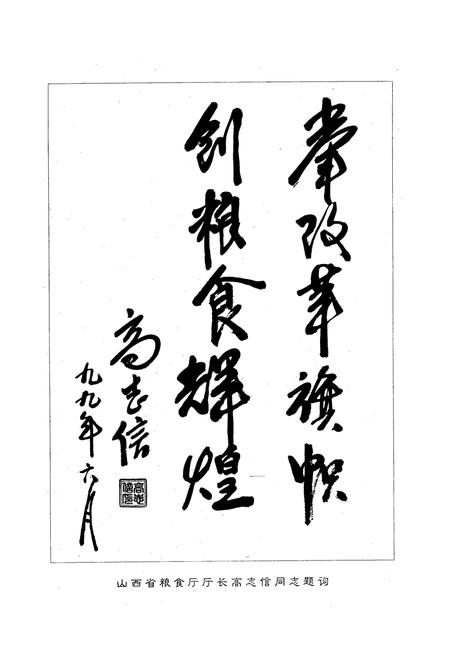 举改革旗帜
创粮食辉煌
高志信
九九年六月
山西省粮食厅厅长高志信同志题词